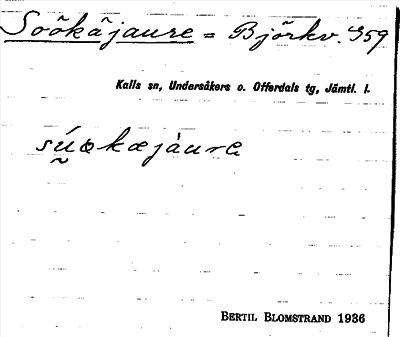 Soökäjaure = Björkv. 359
Kalls sn, Undersåkers o. Offerdals tg, Jämtl. l.
sṵ́okæjàurɛ
BERTIL BLOMSTRAND 1936